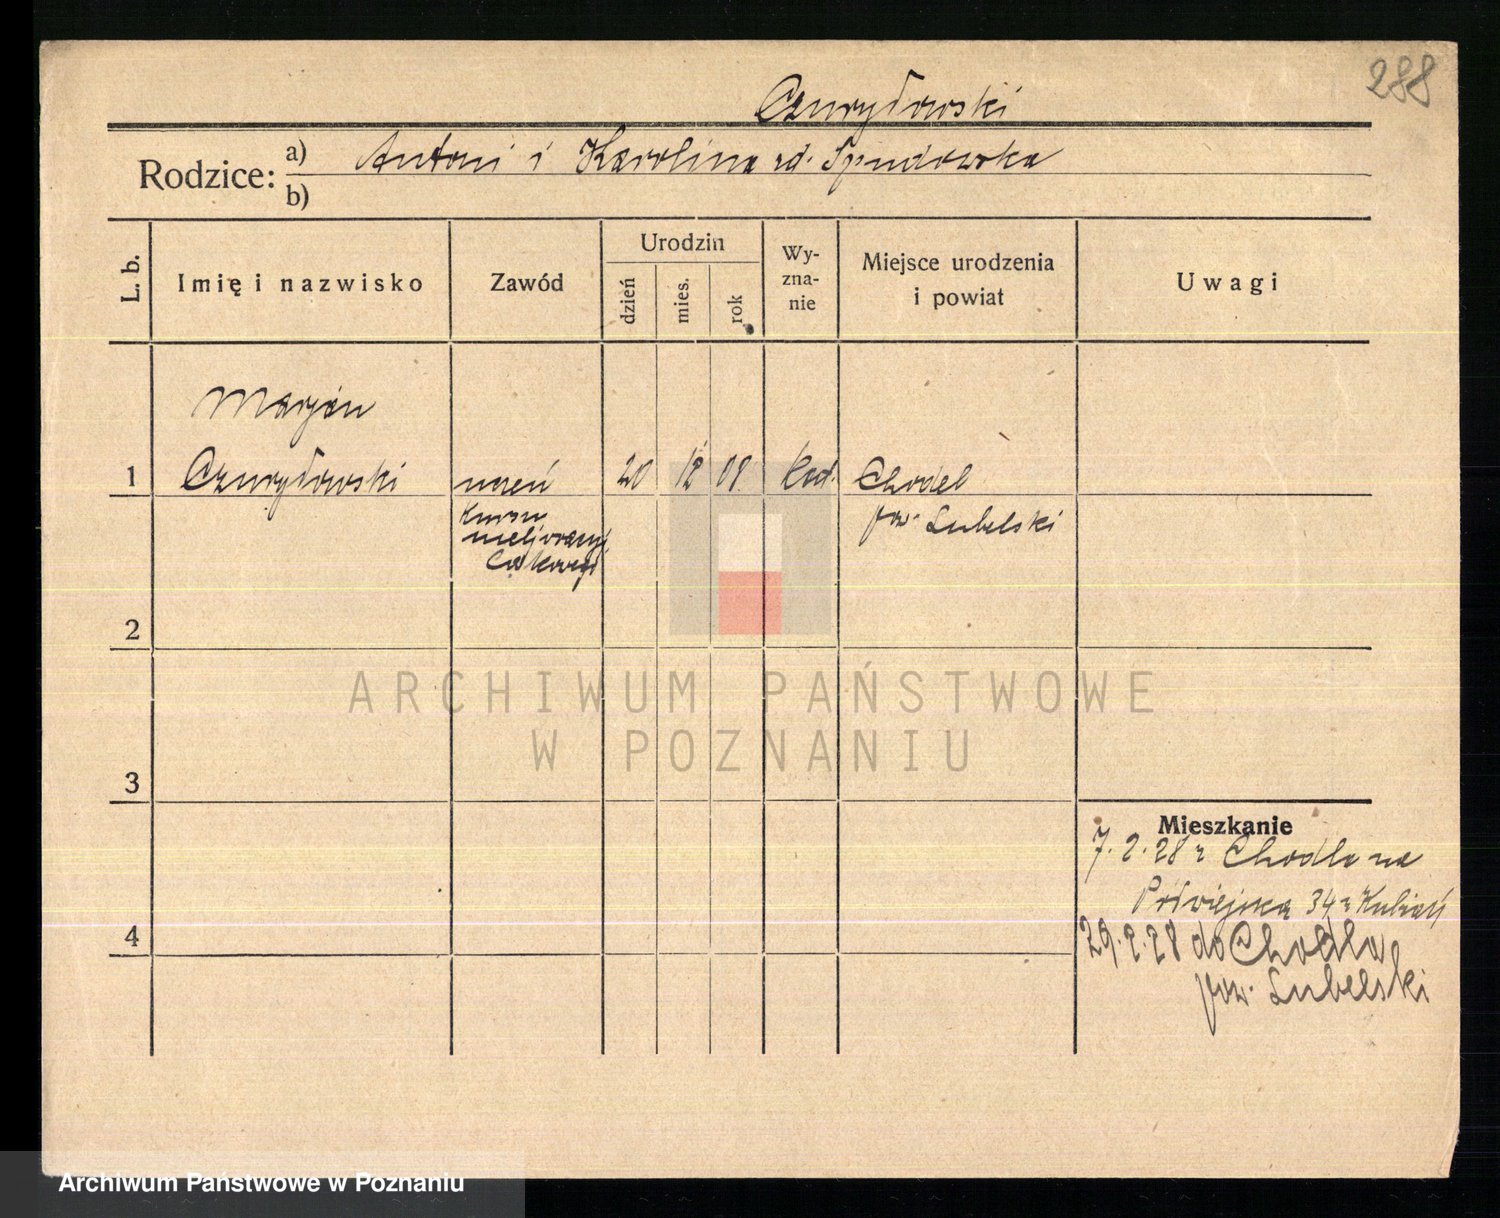 288
Czuryłowski
Rodzice: a) Antoni i Karolina zd. Spudowska
b)
L. b. Imię i nazwisko Zawód Urodzin dzień mies. rok Wyznanie Miejsce urodzenia i powiat Uwagi
Marjan
1 Czuryłowski uczeń 20 12 08 kat. Chodel
kursu pow. Lubelski
meljoracyj
2
ARCHIWUM PAŃSTWOWE
W POZNANIU
3
Mieszkanie
7.2.28 z Chodla na
Półwiejską 34 z Kubiak
4
29.2.28 do Chodla
pow. Lubelski
Archiwum Państwowe w Poznaniu